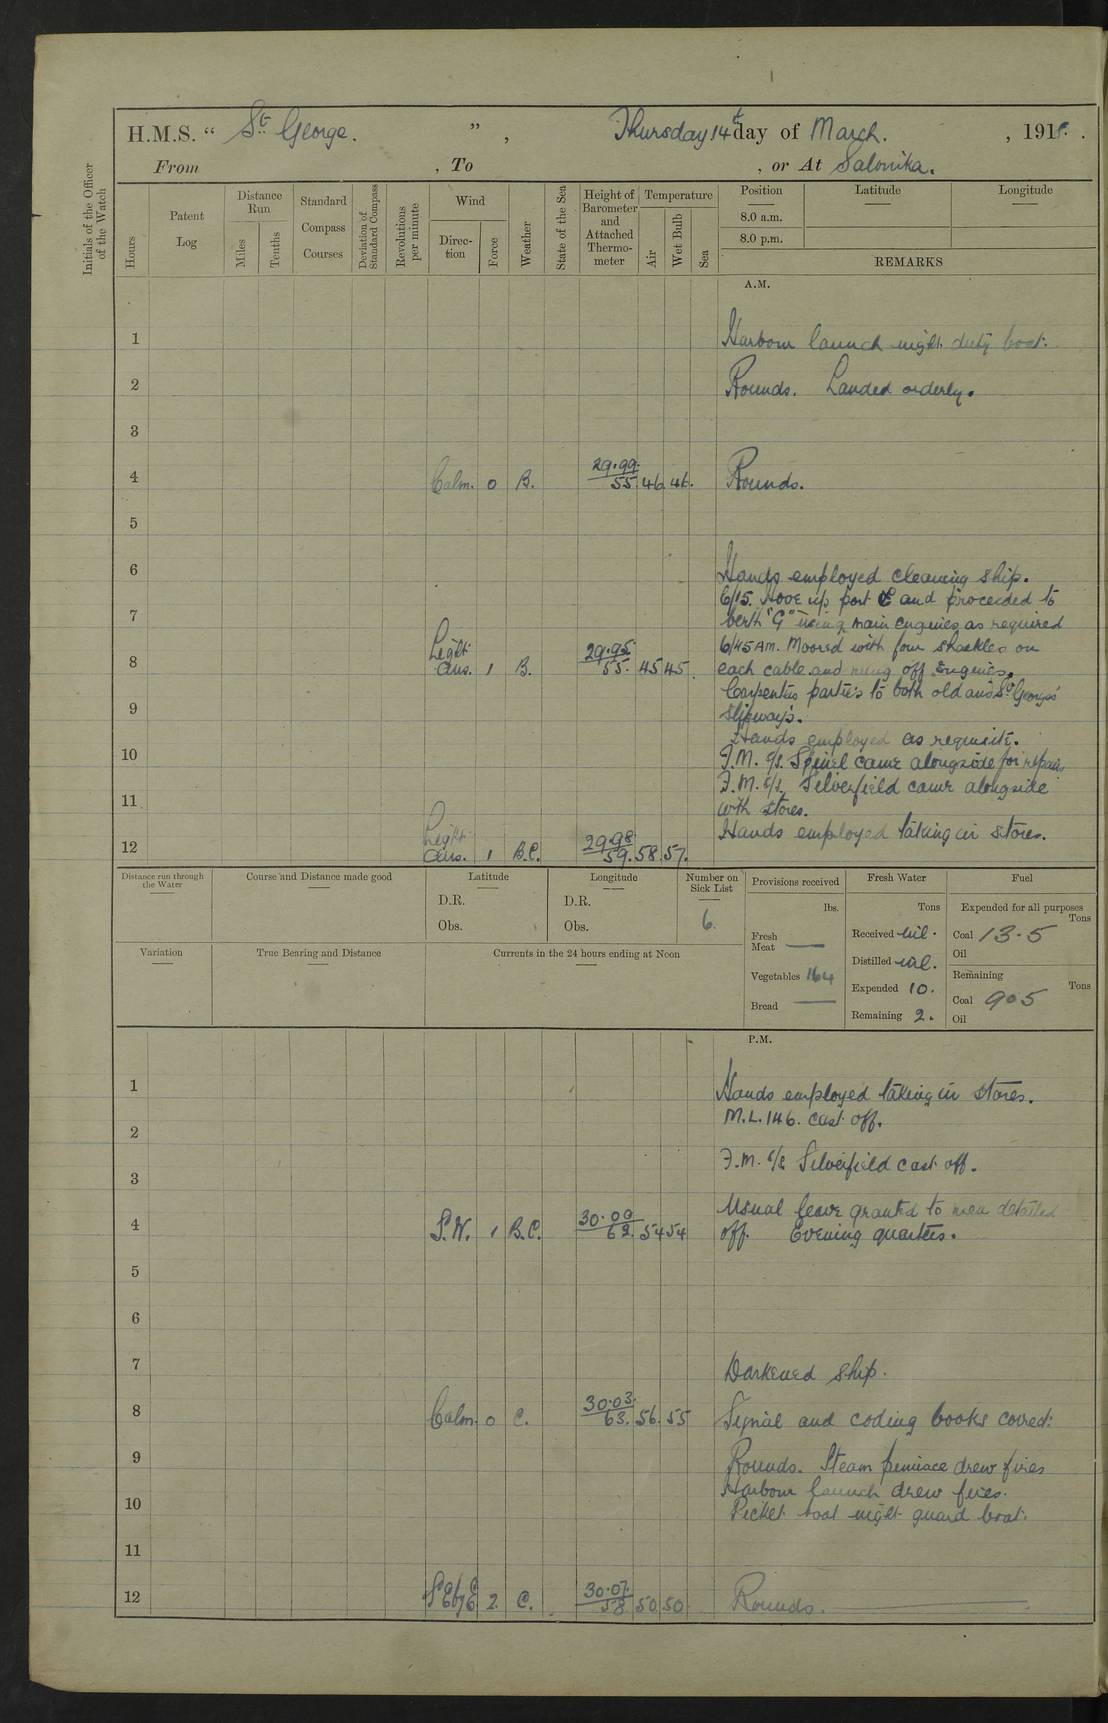 H.M.S. “ St George. ” , Thursday 14th day of March. , 1918.
From , To , or At Salonika.
Initials of the Officer of the Watch
Hours
Patent Log
Distance Run
Miles
Tenths
Standard Compass Courses
Deviation of Standard Compass
Revolutions per minute
Wind
Direc-tion
Force
Weather
State of the Sea
Height of Barometer and Attached Thermo-meter
Temperature
Air
Wet Bulb
Sea
Position
8.0 a.m.
8.0 p.m.
Latitude
Longitude
REMARKS
A.M.
1 Harbour launch night duty boat.
2 Rounds. Landed orderly.
3
4 Calm. 0 B. 29.99. 55. 46. 46. Rounds.
5
6 Hands employed cleaning ship.
6/15. Hove up port and proceeded to
7 berth "G" using main engines as required
6/45 AM. Moored with four shackles on
8 Light Airs. 1 B. 29.95 55. 45 45. each cable and rung off Engines.
Carpenters parties to both old and St. Georges'
9 slipways.
Hands employed as requisite.
10 F.M. S/S. Spinel came alongside for repair.
F.M. S/S. Silverfield came alongside
11 with stores.
Hands employed taking in stores.
12 Light Airs. 1 B.C. 29.98 59. 58. 57.
Distance run through the Water
Course and Distance made good
Latitude
D.R.
Obs.
Longitude
D.R.
Obs.
Number on Sick List
6.
Provisions received
lbs.
Fresh Meat —
Vegetables 164
Bread —
Fresh Water
Tons
Received nil.
Distilled nil.
Expended 10.
Remaining 2.
Fuel
Expended for all purposes
Tons
Coal 13.5
Oil
Remaining
Tons
Coal 905
Oil
Variation
True Bearing and Distance
Currents in the 24 hours ending at Noon
P.M.
1 Hands employed taking in stores.
M.L. 146. cast off.
2
F.M. S/S Silverfield cast off.
3
Usual leave granted to men detailed
4 S.W. 1 B.C. 30.00 62. 54 54 off. Evening quarters.
5
6
7 Darkened ship.
8 Calm. 0 C. 30.03. 63. 56. 55 Signal and coding books correct.
9 Rounds. Steam pinnace drew fires
Harbour launch drew fires.
10 Picket boat night guard boat.
11
12 SEbyE 2. C. 30.07. 58. 50. 50. Rounds.